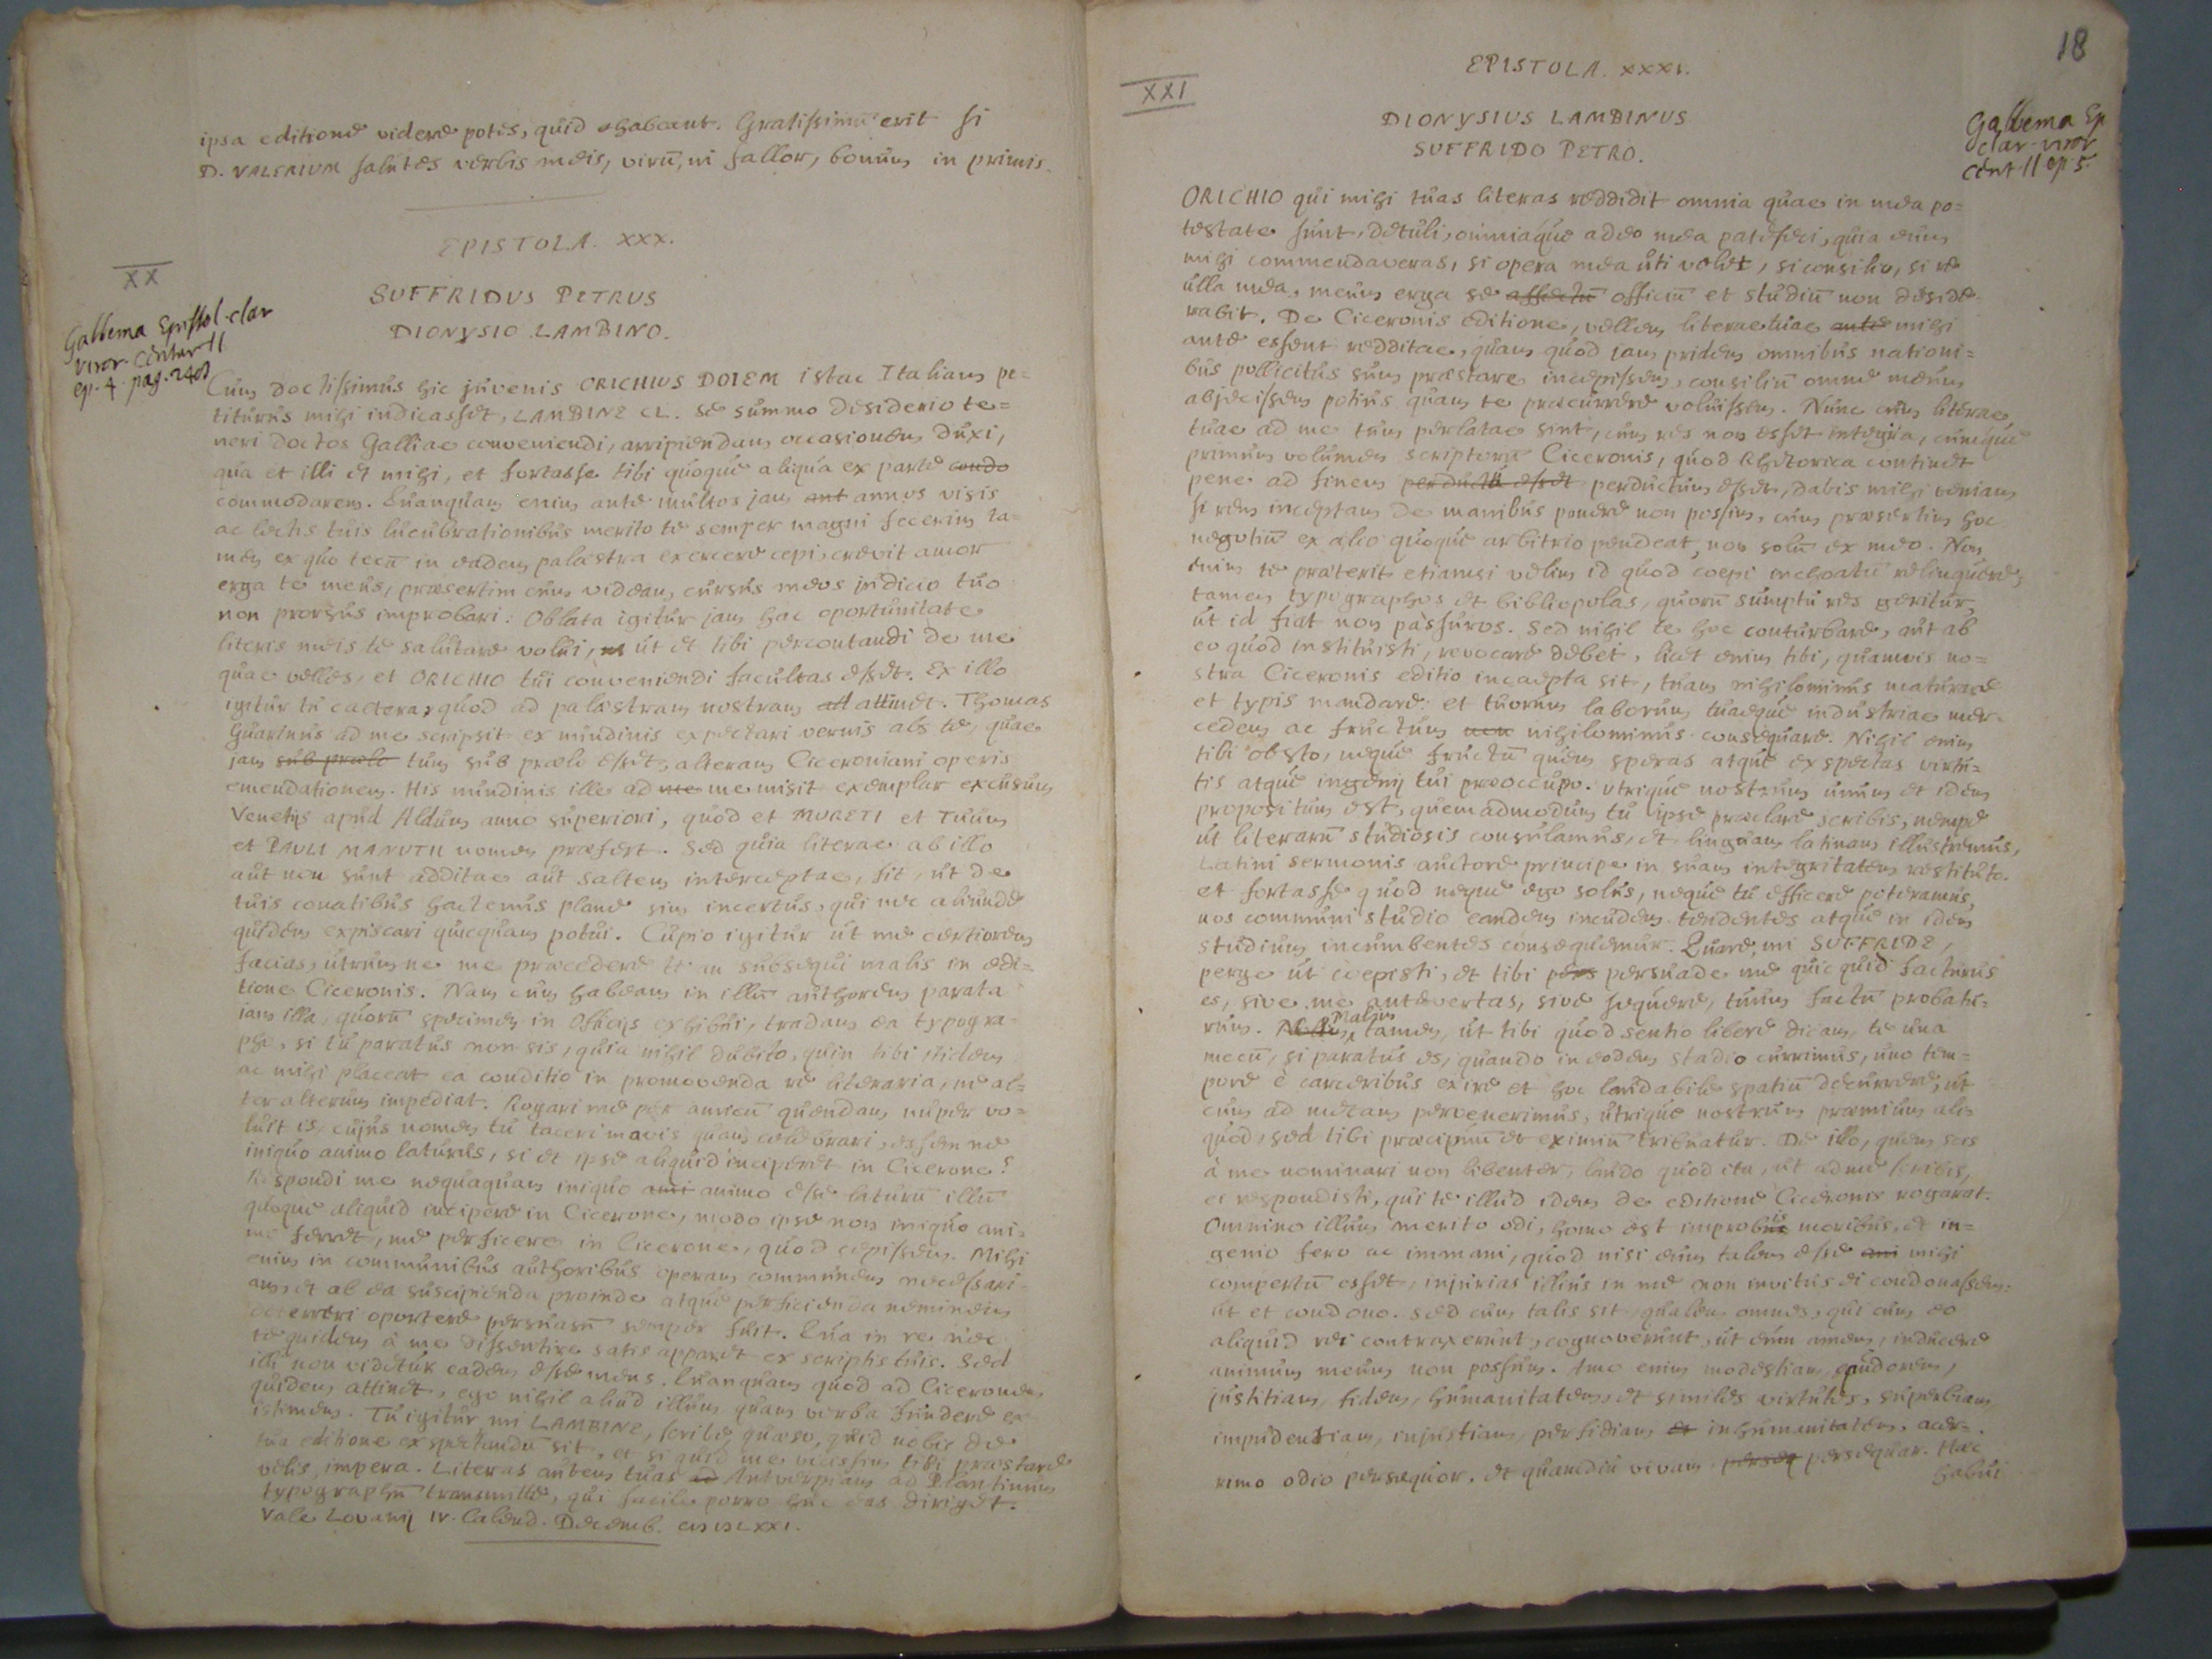 ipsa editione videre potes, quid habeant. Gratissimū erit si
D. VALERIUM salutes verbis meis, virū, ni fallor, bonum in primis.
EPISTOLA. XXX.
XX
SUFFRIDUS PETRUS
DIONYSIO LAMBINO.
Gabbema Epistol. clar
viror. Centur II
ep. 4. pag.
Cum doctissimus hic juvenis ORICHIUS DOIEM istac Italiam pe=
titurus mihi indicasset, LAMBINE CL. se summo desiderio te=
neri doctos Galliae conveniendi, arripiendam occasionem duxi,
qua et illi et mihi, et fortasse tibi quoque aliqua ex parte condo
commodarem. Quanquam enim ante multos jam ant annos visis
ac lectis tuis lucubrationibus merito te semper magni fecerim ta=
men ex quo tecū in eadem palaestra exercere cepi, crevit amor
erga te meus, praesertim cum videam cursus meos judicio tuo
non prorsus improbari: Oblata igitur jam hac oportunitate
literis meis te salutare volui, ut et tibi percontandi de me
quae velles, et ORICHIO tui conveniendi facultas esset. Ex illo
igitur tu caetera, quod ad palaestram nostram att attinet. Thomas
Guarinus ad me scripsit ex nundinis expectari vernis abs te, quae
jam sub praelo tum sub praelo esset, alteram Ciceroniani operis
emendationem. His nundinis ille ad me me misit exemplar excusum
Venetijs apud Aldum anno superiori, quod et MURETI et Tuum
et PAULI MANUTII nomen praefert. Sed quia literae ab illo
aut non sunt additae aut saltem interceptae, fit, ut de
tuis conatibus hactenus plane sim incertus, qui nec aliunde
quidem expiscari quicquam potui. Cupio igitur ut me certiorem
facias, utrumne me praecedere te an subsequi malis in edi=
tione Ciceronis. Nam cum habeam in illū authorem parata
jam illa, quorū specimen in Officijs exhibui, tradam ea typogra=
pho, si tu paratus non sis, quia nihil dubito, quin tibi itidem
ac mihi placeat ea conditio in promovenda re literaria, ne al=
ter alterum impediat. Rogari me per amicū quendam nuper vo=
luit is, cujus nomen tu taceri mavis quam celebrari, essem ne
iniquo animo laturus, si et ipse aliquid inciperet in Cicerone?
Respondi me nequaquam iniquo ani animo esse laturū illū
quoque aliquid incipere in Cicerone, modo ipse non iniquo ani=
mo ferret, me perficere in Cicerone, quod cepissem. Mihi
enim in communibus authoribus operam communem necessari=
am et ab ea suscipienda proinde atque perficienda neminem
deterreri oportere persuasū semper fuit. Qua in re nec
te quidem à me dissentire satis apparet ex scriptis tuis. Sed
illi non videtur eadem esse mens. Quanquam quod ad Ciceronem
quidem attinet, ego nihil aliud illum quam verba fundere ex
istimem. Tu igitur mi LAMBINE, scribe, quaeso, quid nobis de
tua editione expectandū sit, et si quid me vicissim tibi praestare
velis, impera. Literas autem tuas ad Antverpiam ad Plantinum
typographū transmitte, qui facile porro huc eas diriget.
Vale Lovanij IV. Calend. Decemb.
18
EPISTOLA. XXXI.
XXI
DIONYSIUS LAMBINUS
SUFFRIDO PETRO.
Gabbema Ep
clar. viror
Cent. II ep 5.
ORICHIO qui mihi tuas literas reddidit omnia quae in mea po=
testate sunt, detuli, omniaque adeo mea patefeci, quia eum
mihi commendaveras, si opera mea uti volet, si consilio, si re
ulla mea, meum erga se affectū officiū et studiū non deside=
rabit. De Ciceronis editione, vellem literae tuae ante mihi
ante essent redditae, quam quod jam pridem omnibus nationi=
bus pollicitus sum praestare incepissem, consiliū omne meum
abjecissem potius quam te praecurrere voluissem. Nunc cum literae
tuae ad me tum perlatae sint, cum res non esset integra, cumque
primum volumen scriptorū Ciceronis, quod Rhetorica continet
pene ad finem perductū esset perductum esset, dabis mihi veniam
si rem inceptam de manibus ponere non possim, cum praesertim hoc
negotiū ex alio quoque arbitrio pendeat, non solū ex meo. Non
enim te praeterit etiamsi velim id quod coepi inchoatū relinquere,
tamen typographos et bibliopolas, quorū sumptu res geritur,
ut id fiat non passuros. Sed nihil te hoc conturbare, aut ab
eo quod instituisti, revocare debet, licet enim tibi, quamvis no=
stra Ciceronis editio incaepta sit, tuam nihilominus maturare
et typis mandare: et tuorum laborum, tuaeque industriae mer=
cedem ac fructum nihilominus consequare. Nihil enim
tibi obsto, neque fructū quem speras atque exspectas virtu=
tis atque ingenij tui praeoccupo. Utrique nostrum unum et idem
propositum est, quemadmodum tu ipse praeclare scribis, nempe
ut literarū studiosis consulamus, et linguam latinam illustremus,
Latini sermonis auctore principe in suam integritatem restituto.
et fortasse quod neque ego solus, neque tu efficere poteramus,
nos communi studio eandem incudem tendentes atque in idem
studium incumbentes consequemur. Quare, mi SUFFRIDE,
perge ut coepisti, et tibi pers persuade me quicquid facturus
es, sive me antevertas, sive sequere, tuum factū probatu=
rum. Malim tamen, ut tibi quod sentio libere dicam, te una
mecū, si paratus es, quando in eodem stadio currimus, uno tem=
pore è carceribus exire et hoc laudabile spatiū decurrere, ut
cum ad metam pervenerimus, utrique nostrum praemium ali=
quod, sed tibi praecipuū et eximiū tribuatur. De illo, quem scis
à me nominari non libenter, laudo quod ita, ut ad me scribis,
ei respondisti, qui te illud idem de editione Ciceronis rogarat.
Omnino illum merito odi, homo est improbis moribus, et in=
genio fero ac immani, quod nisi eum talem esse ani mihi
compertū esset, injurias illius in me non invitus ei condonassem:
ut et condono. Sed cum talis sit, qualem omnes, qui cum eo
aliquid rei contraxerunt, cognoverunt, ut eum amem, inducere
animum meum non possum. Amo enim modestiam, candorem,
justitiam, fidem, humanitatem, et similes virtutes, superbiam
impudentiam, injustiam, perfidiam et inhumanitatem, acer=
rimo odio persequor, et quamdiu vivam perseq persequar. Haec
habui